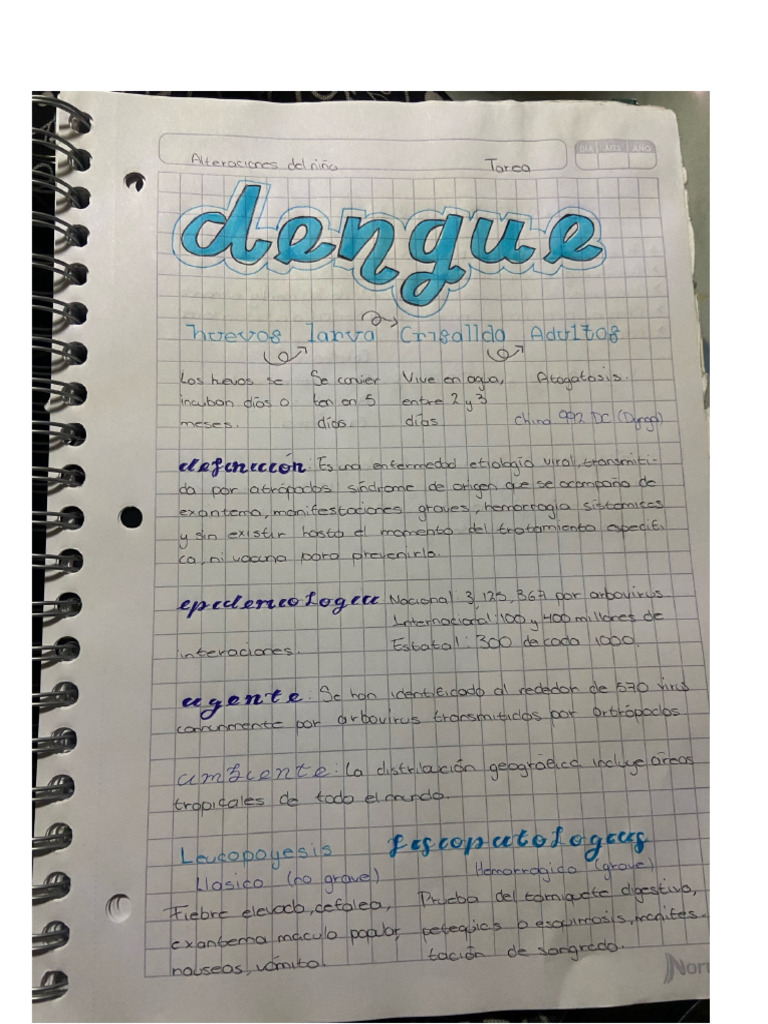 Alteraciones del niño Tarea
DIA MES AÑO
dengue
huevos larva Crisalida Adultos
Los hevos se Se convier Vive en agua, Atogatosis.
incuban días o ten en 5 entre 2 y 3
meses. días. días China 992 DC
definición: Es una enfermedad etiologia viral, transmiti-
da por atrópodos síndrome de origen que se acompaña de
exantema, manifestaciones graves, hemorragia sistemicas
y sin existir hasta el momento del tratamiento especifi
ca, ni vacuna para prevenirla.
epidemiologia Nacional: 3,125,367 por arbovirus
Internacional: 100 y 400 millones de
interaciones. Estatal: 300 de cada 1000.
agente: Se han identificado al rededor de 570 virus
comunmente por arbovirus transmitidos por artrópodos
ambiente: La distribución geografica incluye áreas
tropicales de todo el mundo.
Leucopoyesis fisiopatologias
Clasico (no grave) Hemorragico (grave)
Fiebre elevada, cefalea, Prueba del torniquete digestiva,
exantema maculo papular, petequias o esquimosis, manifes-
nauseas, vómito. tación de sangrado.
Nor